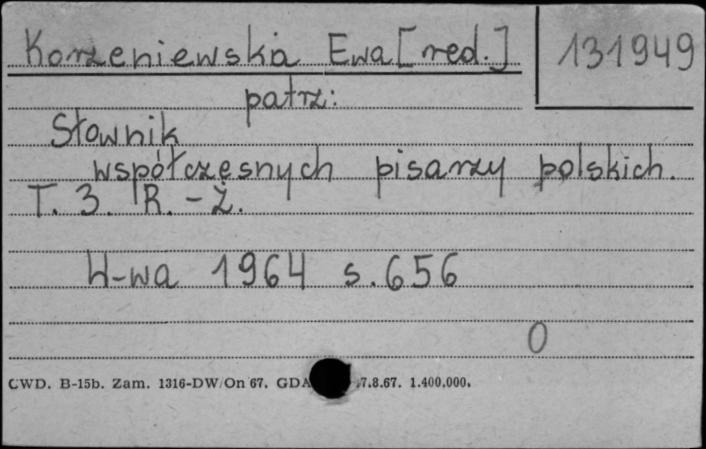 Korzeniewska Ewa [red.]
131949
patrz:
Słownik
współczesnych pisarzy polskich.
T. 3. R. - Ż.
W-wa 1964 s. 656
0
CWD. B-15b. Zam. 1316-DW/On 67. GDA 7.8.67. 1.400.000.